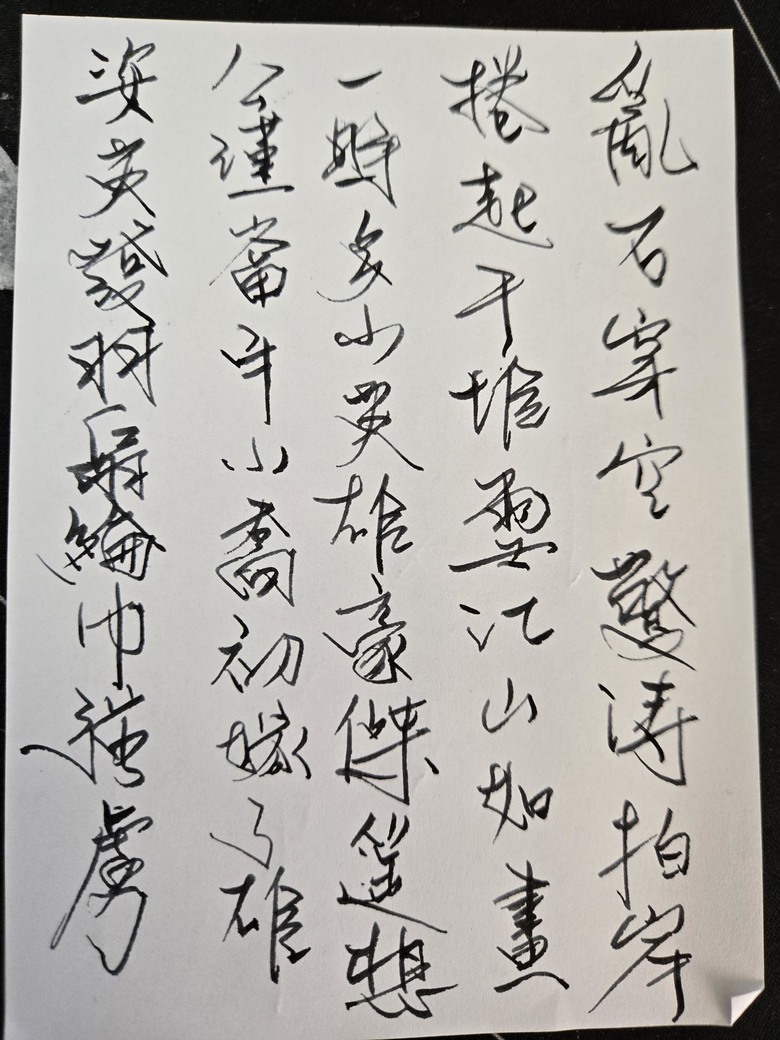 亂石穿空驚涛拍岸
捲起千堆雪江山如畫
一時多小英雄豪傑遥想
公瑾當年小喬初嫁了雄
姿英發羽扇綸巾強虜